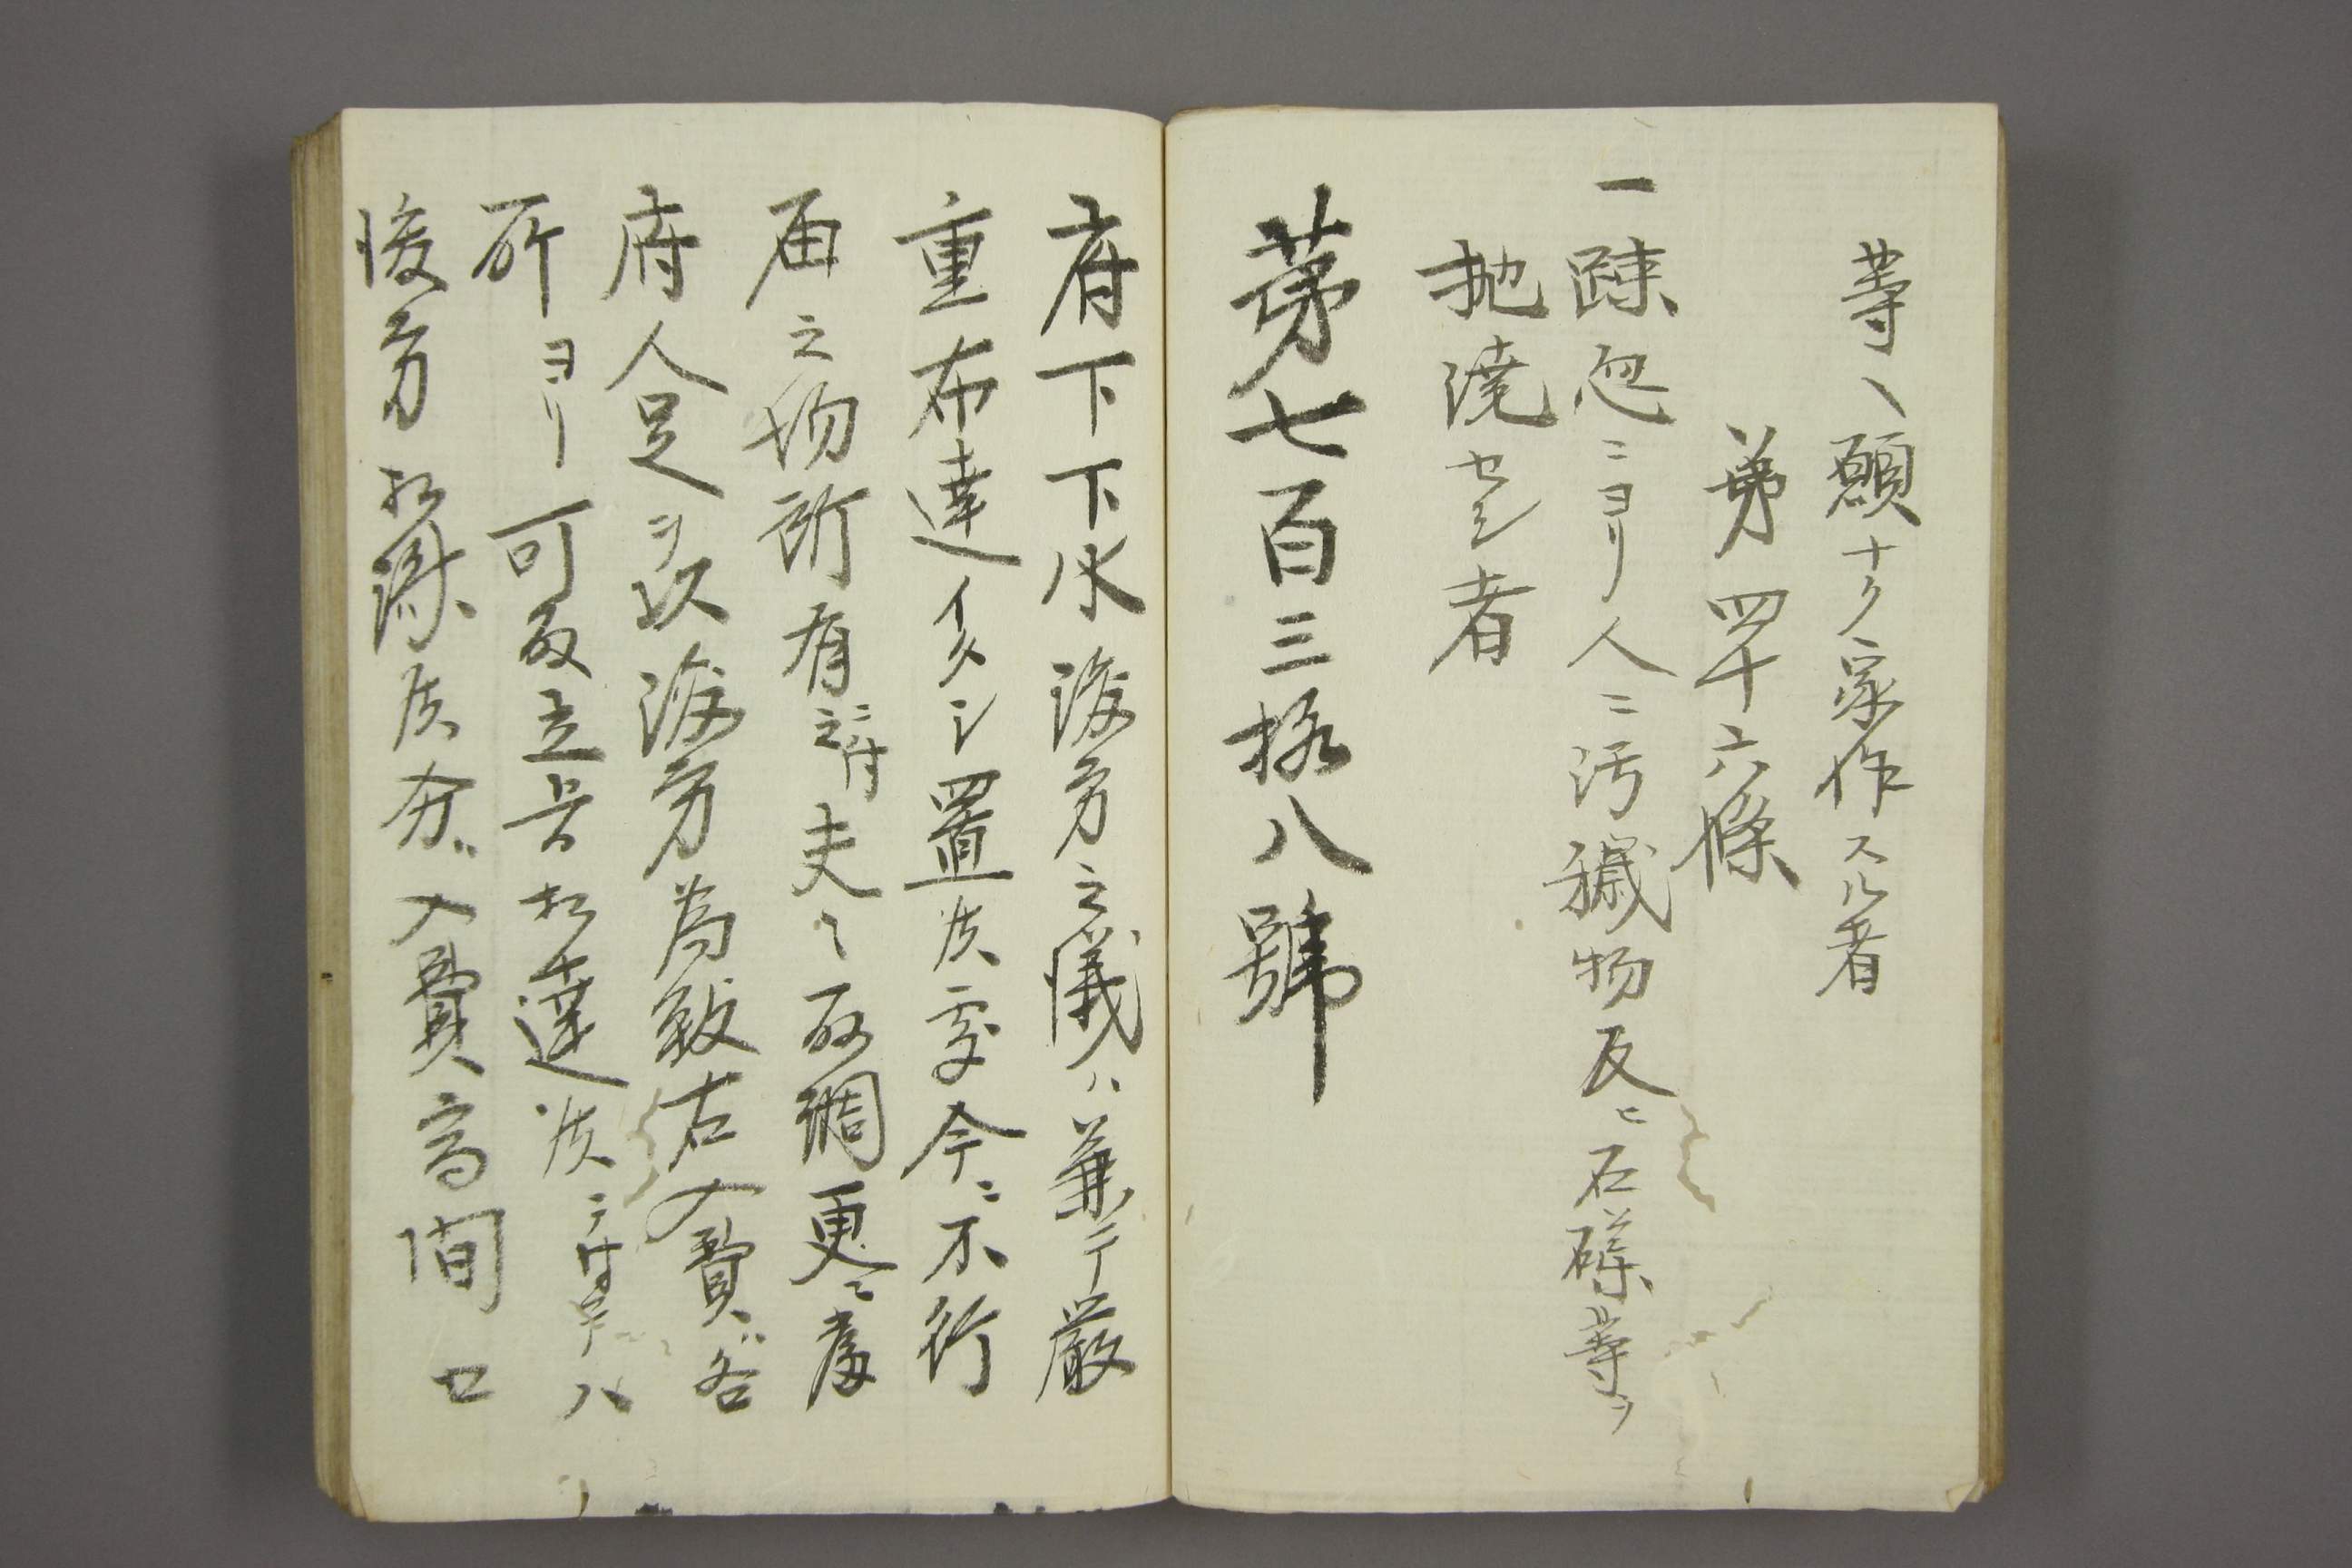 等ヘ願ナク家作スル者
第四十六條
一疎忽ニヨリ人ニ汚穢物反ヒ石礫等ヲ
抛澆セシ者
第七百三拾八號
府下下水浚方之儀ハ兼テ厳
重布達イタシ置候處今ニ不行
届之場所有之ニ付夫々取調更ニ當
府人足ヲ以浚方為致右入費ハ各
所ヨリ可取立旨相達候ニ付早々ハ
浚方相濟候分ハ入費高間口